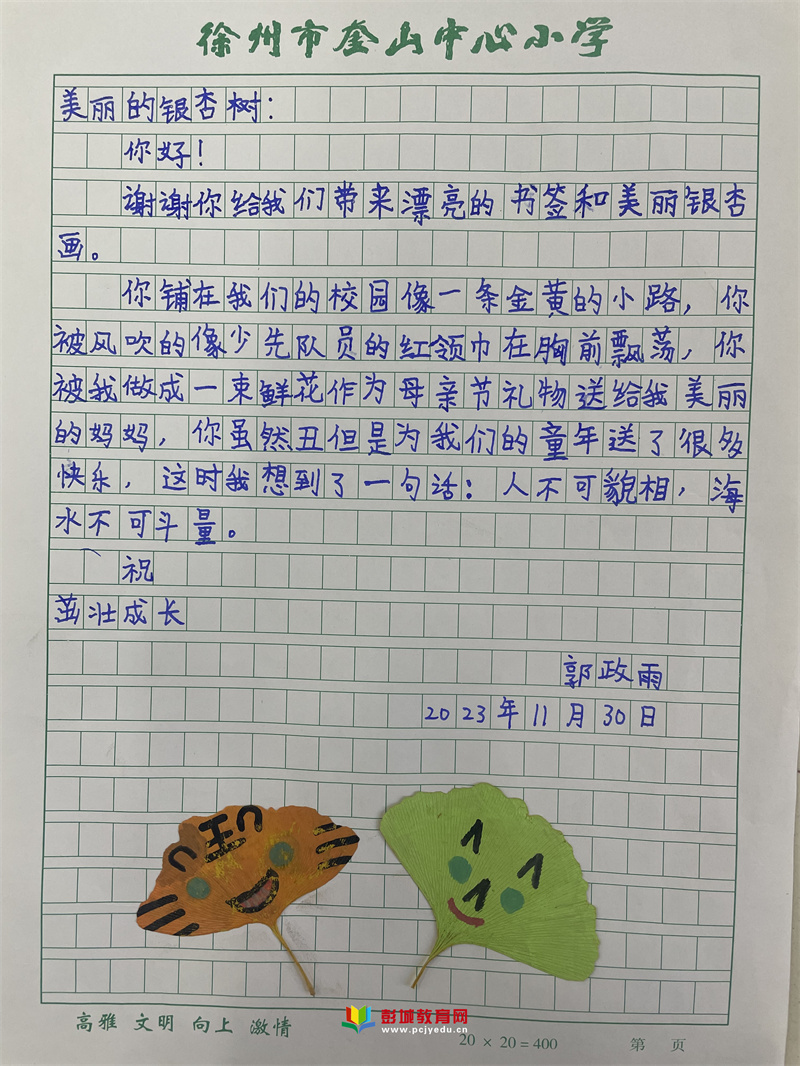 徐州市奎山中心小学
美丽的银杏树：
你好！
谢谢你给我们带来漂亮的书签和美丽银杏
画。
你铺在我们的校园像一条金黄的小路，你
被风吹的像少先队员的红领巾在胸前飘荡，你
被我做成一束鲜花作为母亲节礼物送给我美丽
的妈妈，你虽然丑但是为我们的童年送了很多
快乐，这时我想到了一句话：人不可貌相，海
水不可斗量。
祝
茁壮成长
郭政雨
2023年11月30日
王
高雅 文明 向上 激情
彭城教育网
www.pcjyedu.cn
20×20=400
第 页